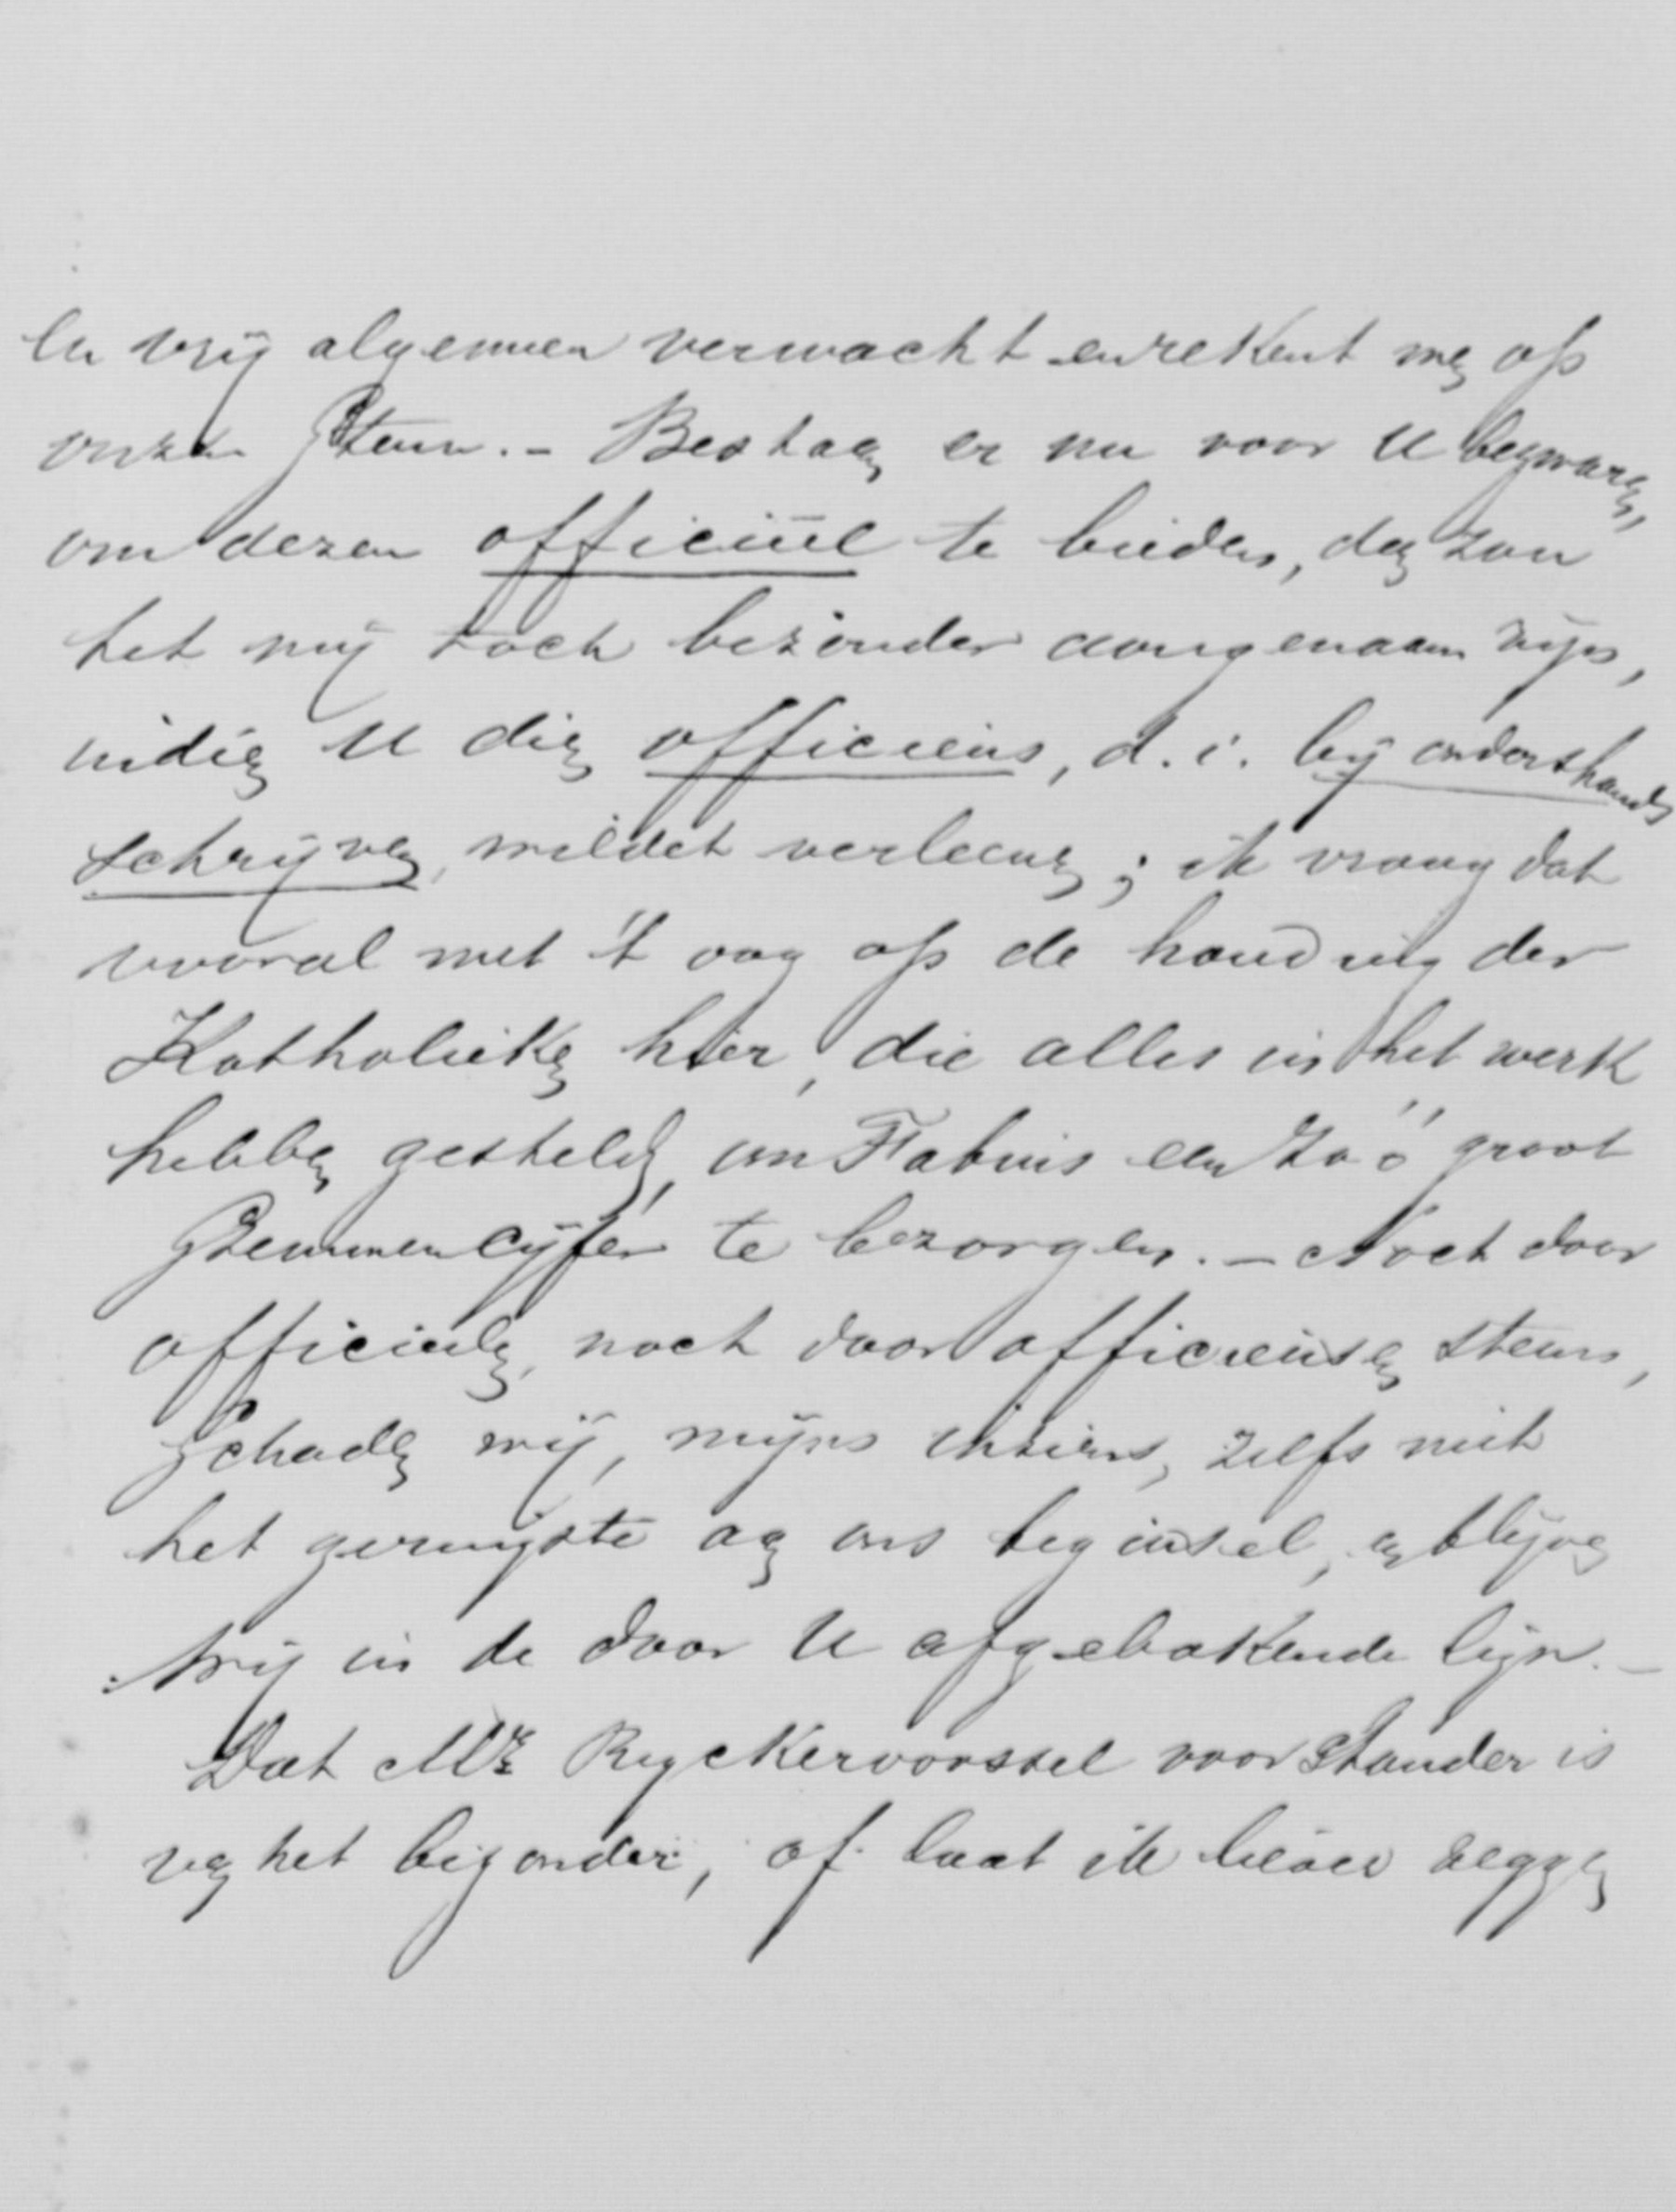 en vrij algemeen verwacht en rekent men op
onzen steun. - Bestaan er nu voor U bezwaren,
om dezen officiëel te bieden, dan zou
het mij toch bezonder aangenaam zijn,
indien U dien officieus, d.i. bij onderhandsch
schrijven, wildet verleenen; ik vraag dat
vooral met 't oog op de houding der
Katholieken hier, die alles in het werk
hebben gesteld, om Fabius een zóó groot
stemmencijfer te bezorgen. - Noch door
officieelen, noch door officieusen steun,
schaden wij, mijns inziens, zelfs niet
het geringste aan ons beginsel, en blijven
wij in de door U afgebakende lijn. -
Dat Mr Ryckevorssel voorstander is
van het bijzonder, of laat ik liever zeggen